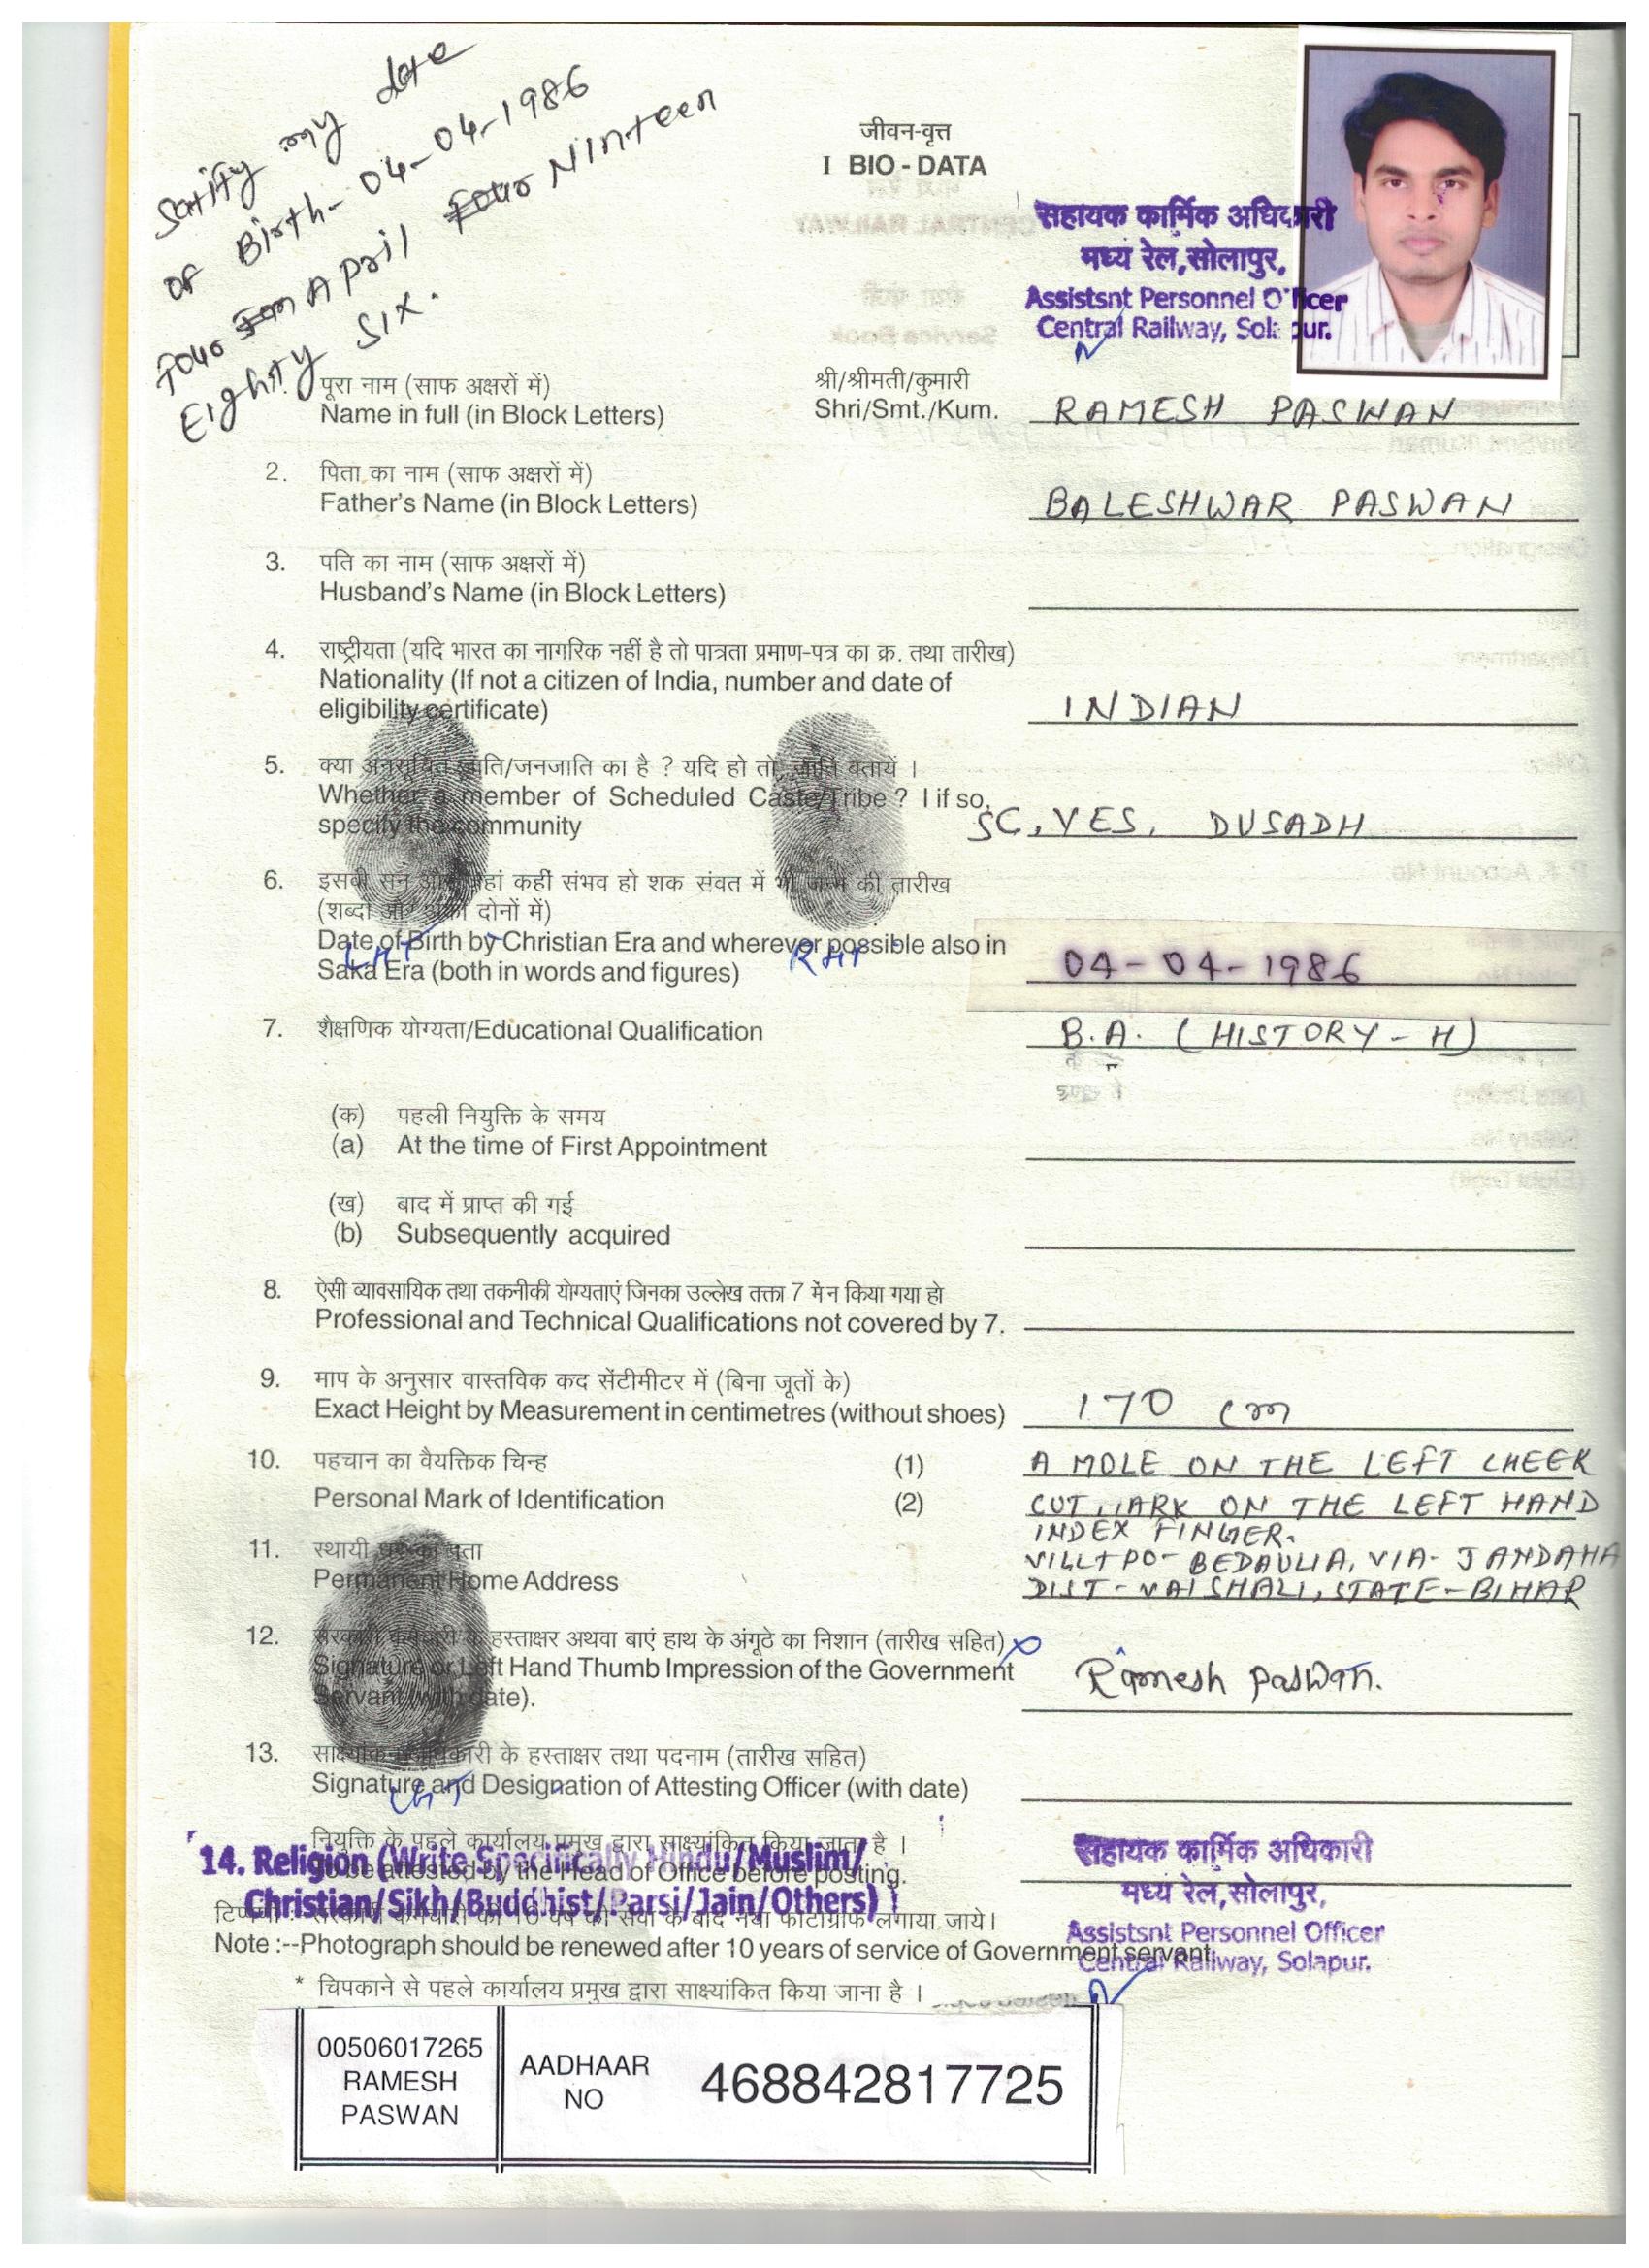 Satify my date
of Birth- 04-04-1986
Four April Ninteen
Eighty Six.
जीवन-वृत्त
I BIO - DATA
सहायक कार्मिक अधिकारी
मध्य रेल, सोलापुर,
Assistsnt Personnel Officer
Central Railway, Solapur.
पूरा नाम (साफ अक्षरों में) श्री/श्रीमती/कुमारी
Name in full (in Block Letters) Shri/Smt./Kum. RAMESH PASWAN
2. पिता का नाम (साफ अक्षरों में)
Father's Name (in Block Letters) BALESHWAR PASWAN
3. पति का नाम (साफ अक्षरों में)
Husband's Name (in Block Letters)
4. राष्ट्रीयता (यदि भारत का नागरिक नहीं है तो पात्रता प्रमाण-पत्र का क्र. तथा तारीख)
Nationality (If not a citizen of India, number and date of
eligibility certificate) INDIAN
5. क्या अनुसूचित जाति/जनजाति का है ? यदि हो तो, जाति बतायें ।
Whether a member of Scheduled Caste/Tribe ? I if so,
specify the community SC, YES, DUSADH
6. इसवी सन और जहां कहीं संभव हो शक संवत में भी जन्म की तारीख
(शब्दों और अंकों दोनों में)
Date of Birth by Christian Era and wherever possible also in
Saka Era (both in words and figures) 04-04-1986
LHT RHT
7. शैक्षणिक योग्यता/Educational Qualification B.A. (HISTORY - H)
(क) पहली नियुक्ति के समय
(a) At the time of First Appointment
(ख) बाद में प्राप्त की गई
(b) Subsequently acquired
8. ऐसी व्यावसायिक तथा तकनीकी योग्यताएं जिनका उल्लेख तक्ता 7 में न किया गया हो
Professional and Technical Qualifications not covered by 7.
9. माप के अनुसार वास्तविक कद सेंटीमीटर में (बिना जूतों के)
Exact Height by Measurement in centimetres (without shoes) 170 cm
10. पहचान का वैयक्तिक चिन्ह (1) A MOLE ON THE LEFT CHEEK
Personal Mark of Identification (2) CUT MARK ON THE LEFT HAND
INDEX FINGER.
11. स्थायी घर का पता VILL+PO- BEDAULIA, VIA- JANDAHA
Permanent Home Address DIST-VAISHALI, STATE-BIHAR
12. सरकारी कर्मचारी के हस्ताक्षर अथवा बाएं हाथ के अंगूठे का निशान (तारीख सहित)
Signature or Left Hand Thumb Impression of the Government Ramesh Paswan.
Servant (with date).
13. साक्ष्यांकन अधिकारी के हस्ताक्षर तथा पदनाम (तारीख सहित)
Signature and Designation of Attesting Officer (with date)
LHT
नियुक्ति के पहले कार्यालय प्रमुख द्वारा साक्ष्यांकित किया जाता है ।
To be attested by the Head of Office before posting.
14. Religion (Write Specifically Hindu/Muslim/
Christian/Sikh/Buddhist/Parsi/Jain/Others)
सहायक कार्मिक अधिकारी
मध्य रेल, सोलापुर,
Assistsnt Personnel Officer
Central Railway, Solapur.
टिप्पणी : सरकारी कर्मचारी की 10 वर्ष की सेवा के बाद नया फोटोग्राफ लगाया जाये।
Note :--Photograph should be renewed after 10 years of service of Government servant
* चिपकाने से पहले कार्यालय प्रमुख द्वारा साक्ष्यांकित किया जाना है ।
00506017265
RAMESH
PASWAN
AADHAAR
NO
468842817725